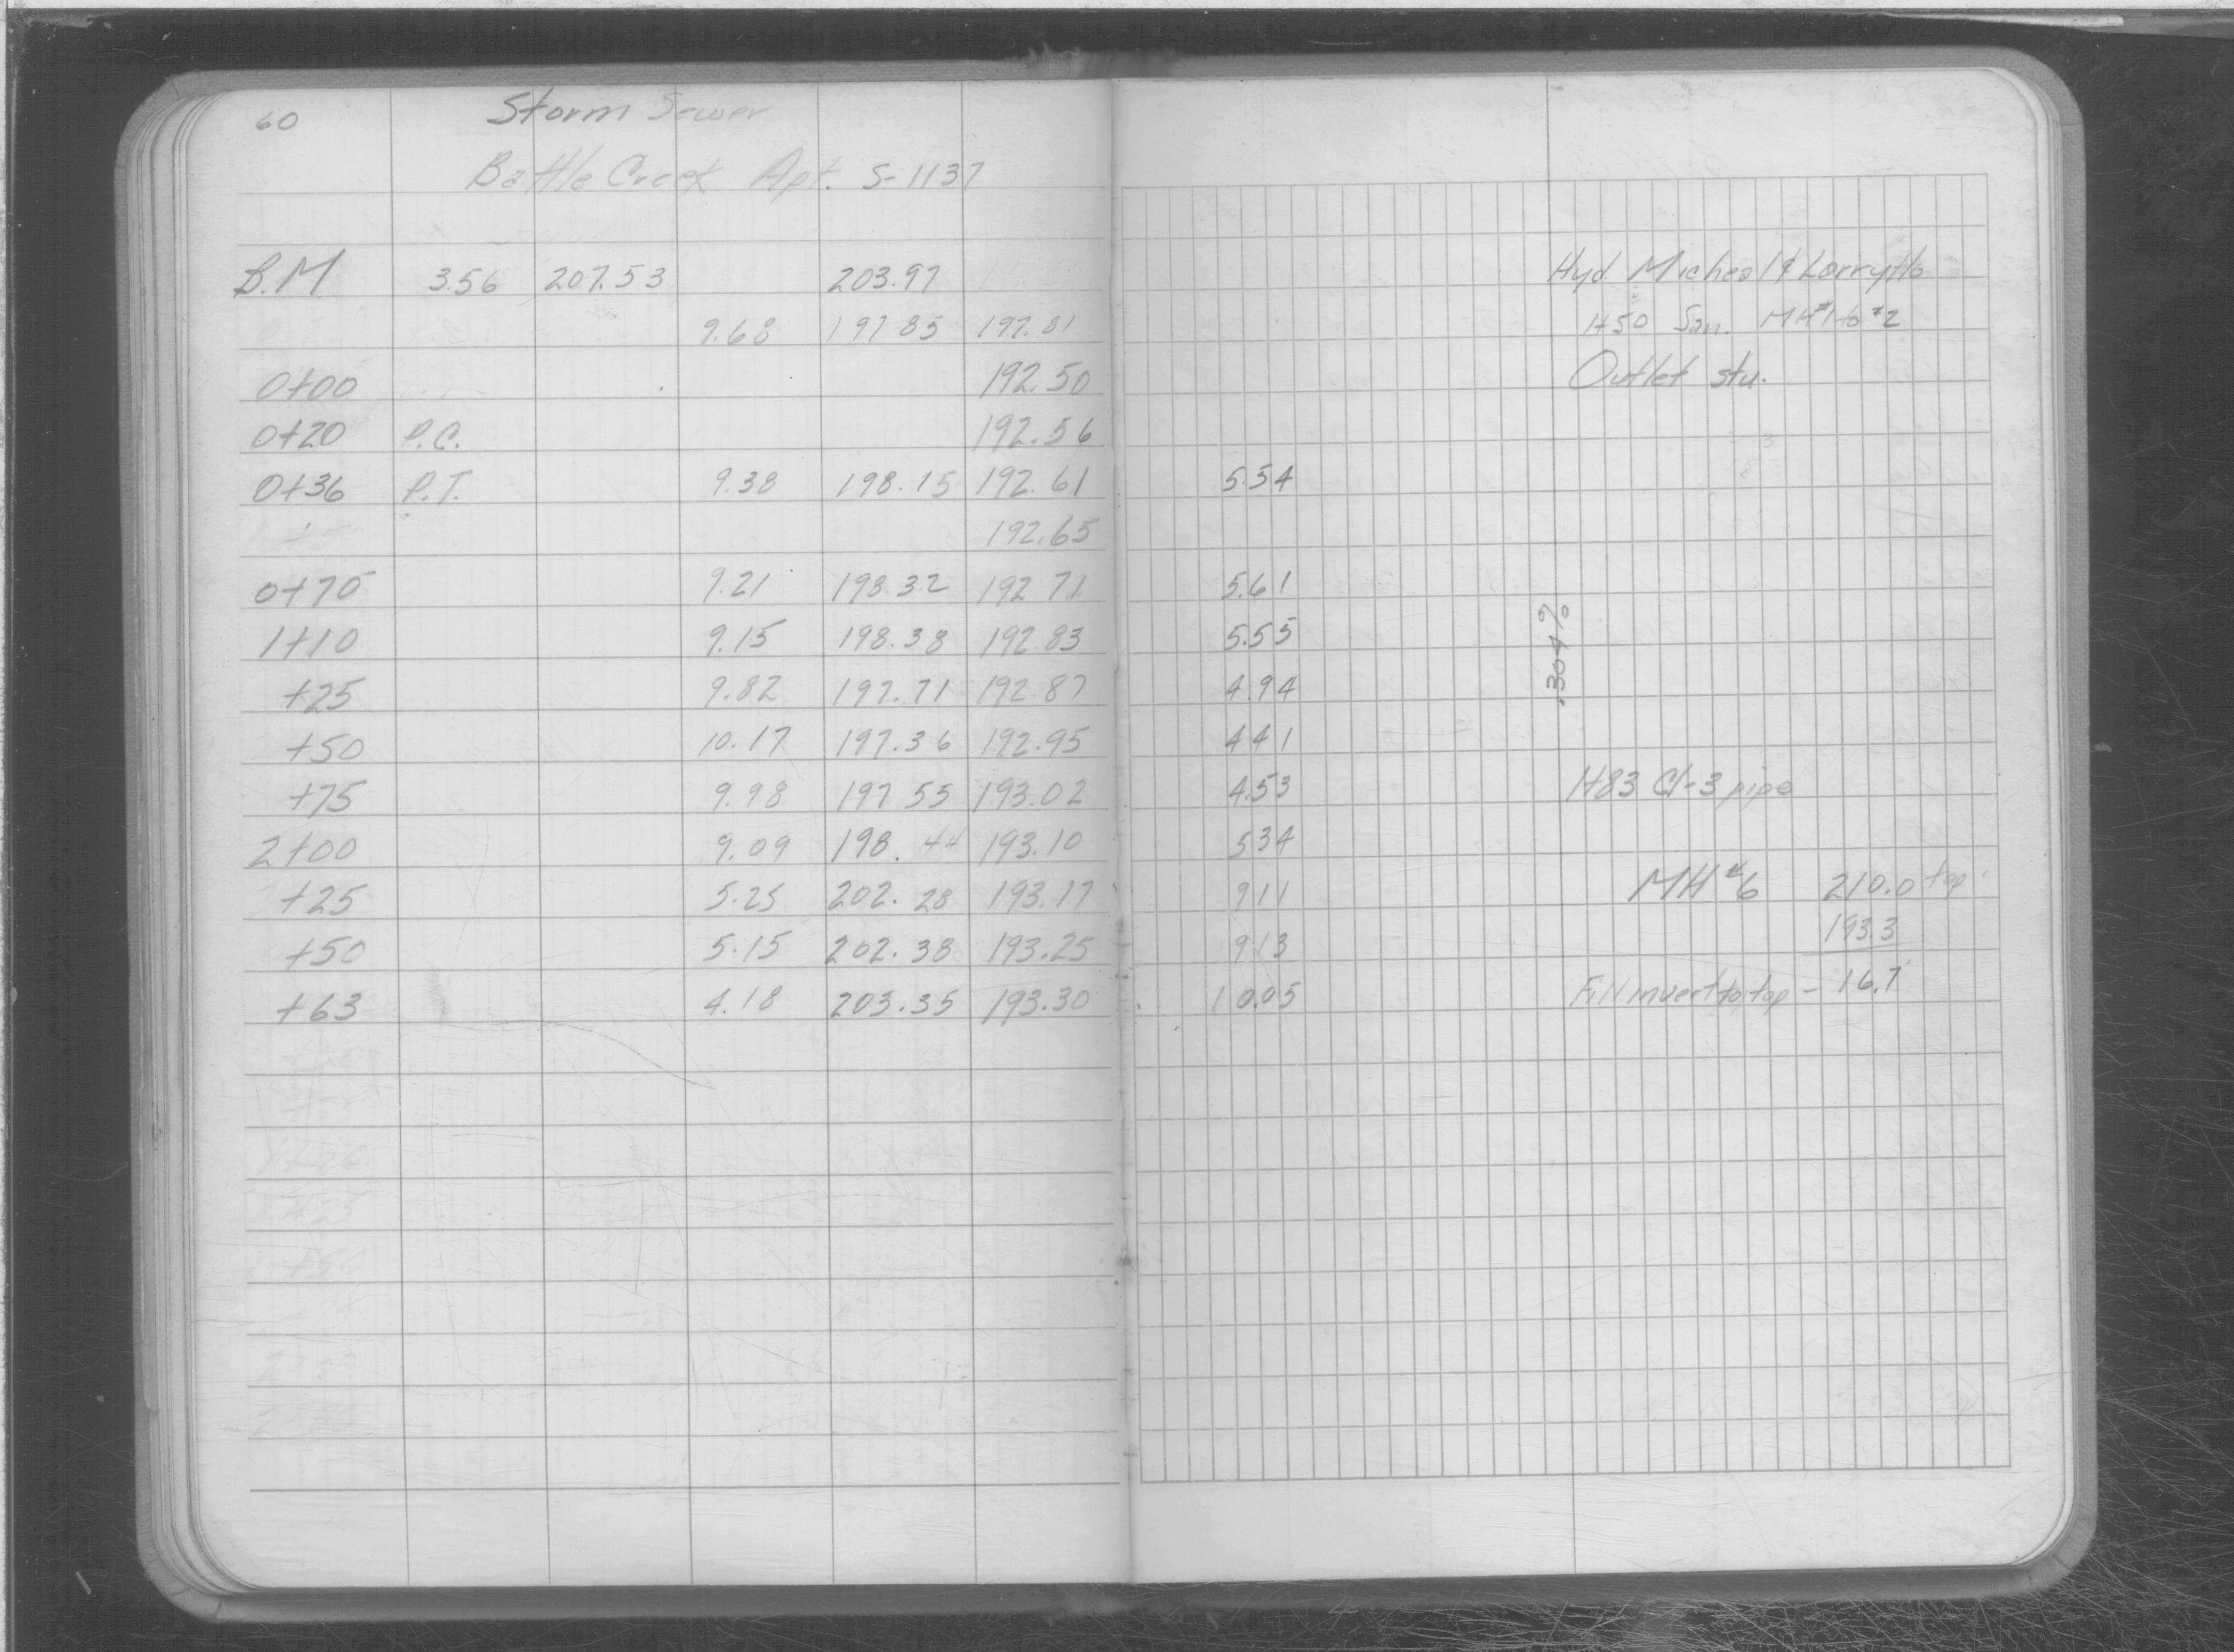 60
Storm Sewer
Battle Creek Apt. S-1137
B.M 3.56 207.53 203.97 Hyd. Micheal & Larry Ho
9.68 197.85 197.81 1+50 San. MH#1 to #2
0+00 192.50 Outlet stu.
0+20 P.C. 192.56
0+36 P.T. 9.38 198.15 192.61 5.54
192.65
0+70 9.21 198.32 192.71 5.61
1+10 9.15 198.38 192.83 5.55
.304%
+25 9.82 197.71 192.87 4.94
+50 10.17 197.36 192.95 441
+75 9.98 197 55 193.02 4.53 1+83 Cl-3 pipe
2+00 9.09 198.44 193.10 534
+25 5.25 202.28 193.17 911 MH #6 210.0 top
193.3
+50 5.15 202.38 193.25 913
+63 4.18 203.35 193.30 10.05 Fill invert to top - 16.7